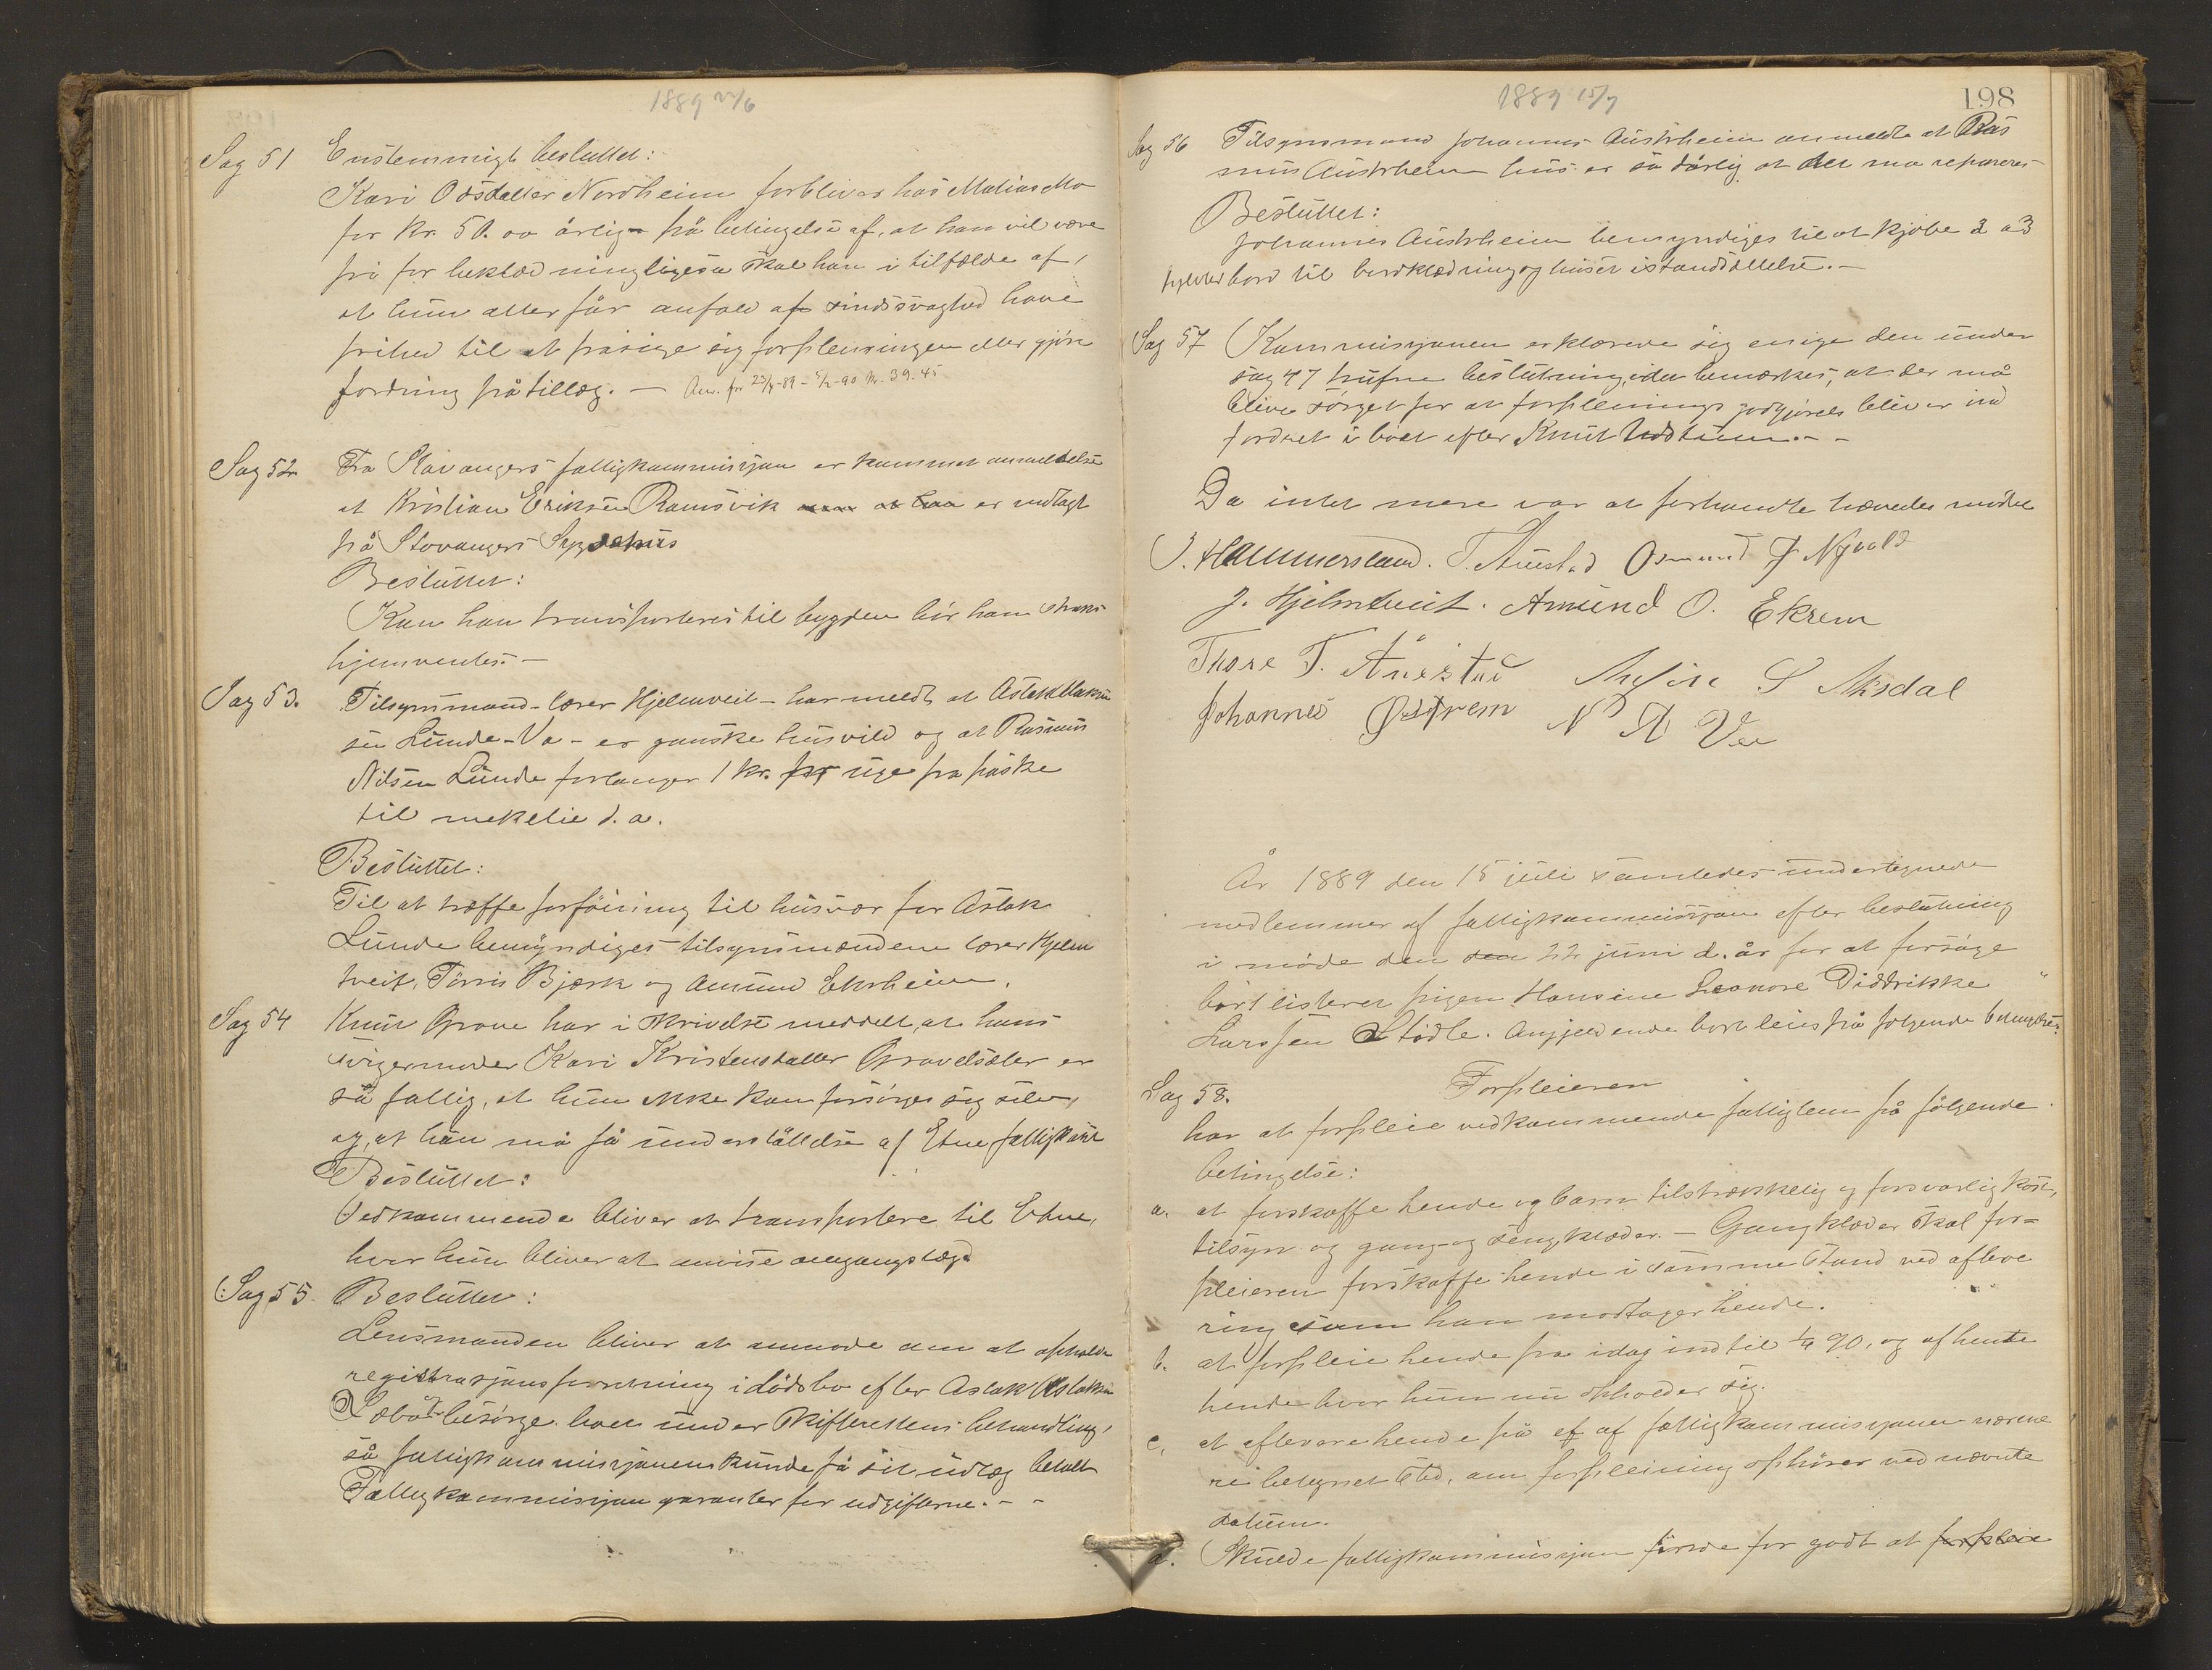 1889 22/6
Sag 51 Enstemmigt besluttet:
Kari Osdatter Nordheim forbliver hos Matias Mo
for Kr. 50.00 årlig på betingelse af, at han vil være
fri for beklædning ligeså skal han i tilfælde af,
at hun atter får anfald af sindssvaghed have
frihed til at frasige sig forpleiningen eller gjöre
fordring på tillæg. —
Sag 52 Fra Stavangers fattigkommisjon er kommet anmeldelse
at Kristian Eriksen Ramsvik er indlagt
på Stavangers Sygehus
Besluttet:
Kan han transporteres til bygden bör han straks
hjemsendes. —
Sag 53. Tilsynsmand - lærer Hjelmveit - har meldt at Aslak Aslak
sen Lunde - Va - er ganske husvild og at Rasmus
Nilsen Lunde forlanger 1 kr. for uge fra påske
til mekelie d. a.
Besluttet:
Til at træffe forföining til husvær for Aslak
Lunde bemyndiges tilsynsmændene lærer Hjelm
tveit, Törris Bjærk og Amund Ekrheim.
Sag 54 Knut Grove har i skrivelse meddelt, at hans
svigermoder Kari Kristensdatter Gravelsæter er
så fattig, at hun ikke kan forsörge sig selv,
og, at hun må få understöttelse af Etne fattigkasse
Besluttet:
Vedkommende bliver at transportere til Etne,
hvor hun bliver at anvise omgangslægd
Sag 55. Besluttet:
Lensmanden bliver at anmode om at afholde
registrasjonsforretning i dödsbo efter Aslak Aslaksen
besörge boet under Skifterettens behandling,
så fattigkommisjonen kunde få sit udlæg betalt
Fattigkommisjon garanter for udgifterne. - -
1889 15/7
198
Sag 56 Tilsynsmand Johannes Austrheim anmeldte at Ras
mus Austrheim hus er så dårlig at det må repareres
Besluttet:
Johannes Austrheim bemyndiges til at kjöbe 2 a 3
tylvter bord til bordklædning og huset istandsættelse. —
Sag 57 Kommisjonen erklærede sig enige den under
sag 47 trufne beslutning, idet bemærkes, at der må
blive sörget for at forpleinings godtgjörels bliver ind
fordret i boet efter Knut
Da intet mere var at forhandle hævedes mödet
J. Hammersland. T. Aurstad Osmund J Nyvold
J. Hjelmtveit. Amund O. Ekrem
Thore T. Åurstad Anfin S Aksdal
Johannes Östrem N A Vee
År 1889 den 15 juli samledes undertegnede
medlemmer af fattigkommissjon efter beslutning
i möde den 22 juni d. år for at forsöge
bortlisteret pigen Hansine Leonore Diddrikke
Larssen Stödle. Angjeldende bortleies på fölgende betingelse:
Sag 58. Forpleieren
har at forpleie vedkommende fattiglem på fölgende
betingelse:
a. at forskaffe hende og barn tilstrækkelig og forsvarlig kost,
tilsyn og gang og sengklæder. — Gangklæder skal for=
pleieren forskaffe hende i samme stand ved afleve
ring som han modtager hende.
b. at forpleie hende fra idag indtil 90, og afhente
hende hvor hun nu opholder sig.
c. at aflevere hende på et af fattigkommisjonen nærme
re betegnet sted, om forpleining ophörer ved nævnte
datum.
d. Skulde fattigkommisjon finde for godt at forpleie